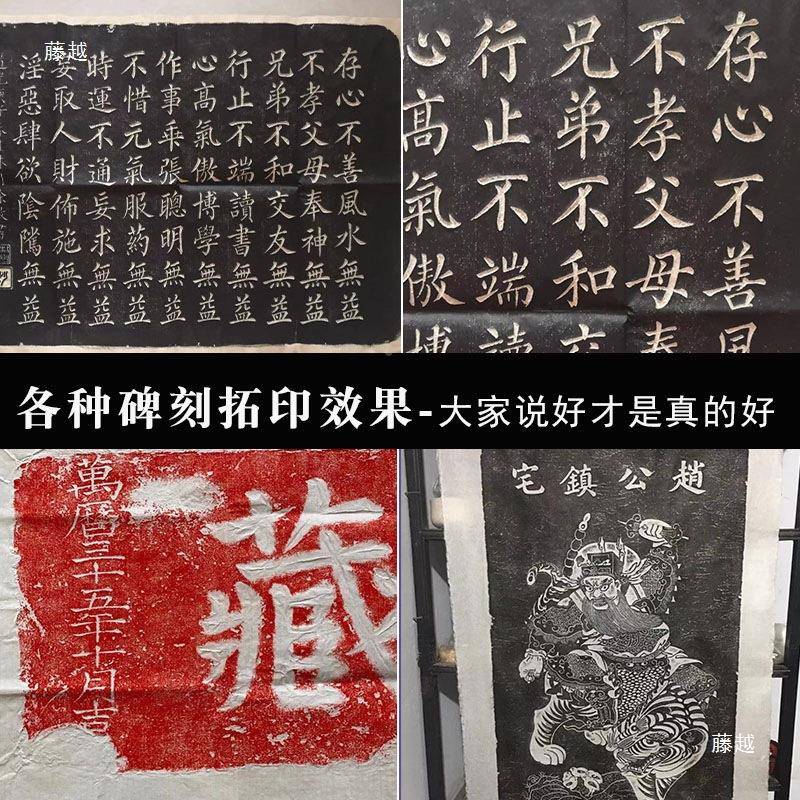 藤越
存心不善風水無益
不孝父母奉神無益
兄弟不和交友無益
行止不端讀書無益
心髙氣傲博學無益
作事乖張聰明無益
不惜元氣服药無益
時運不通妄求無益
妄取人財佈施無益
淫惡肆欲陰騭無益
存心不善風
不孝父母奉
兄弟不和交
行止不端讀
心髙氣傲博
各种碑刻拓印效果-大家说好才是真的好
藏
萬曆三十五年十月吉
趙公鎮宅
藤越